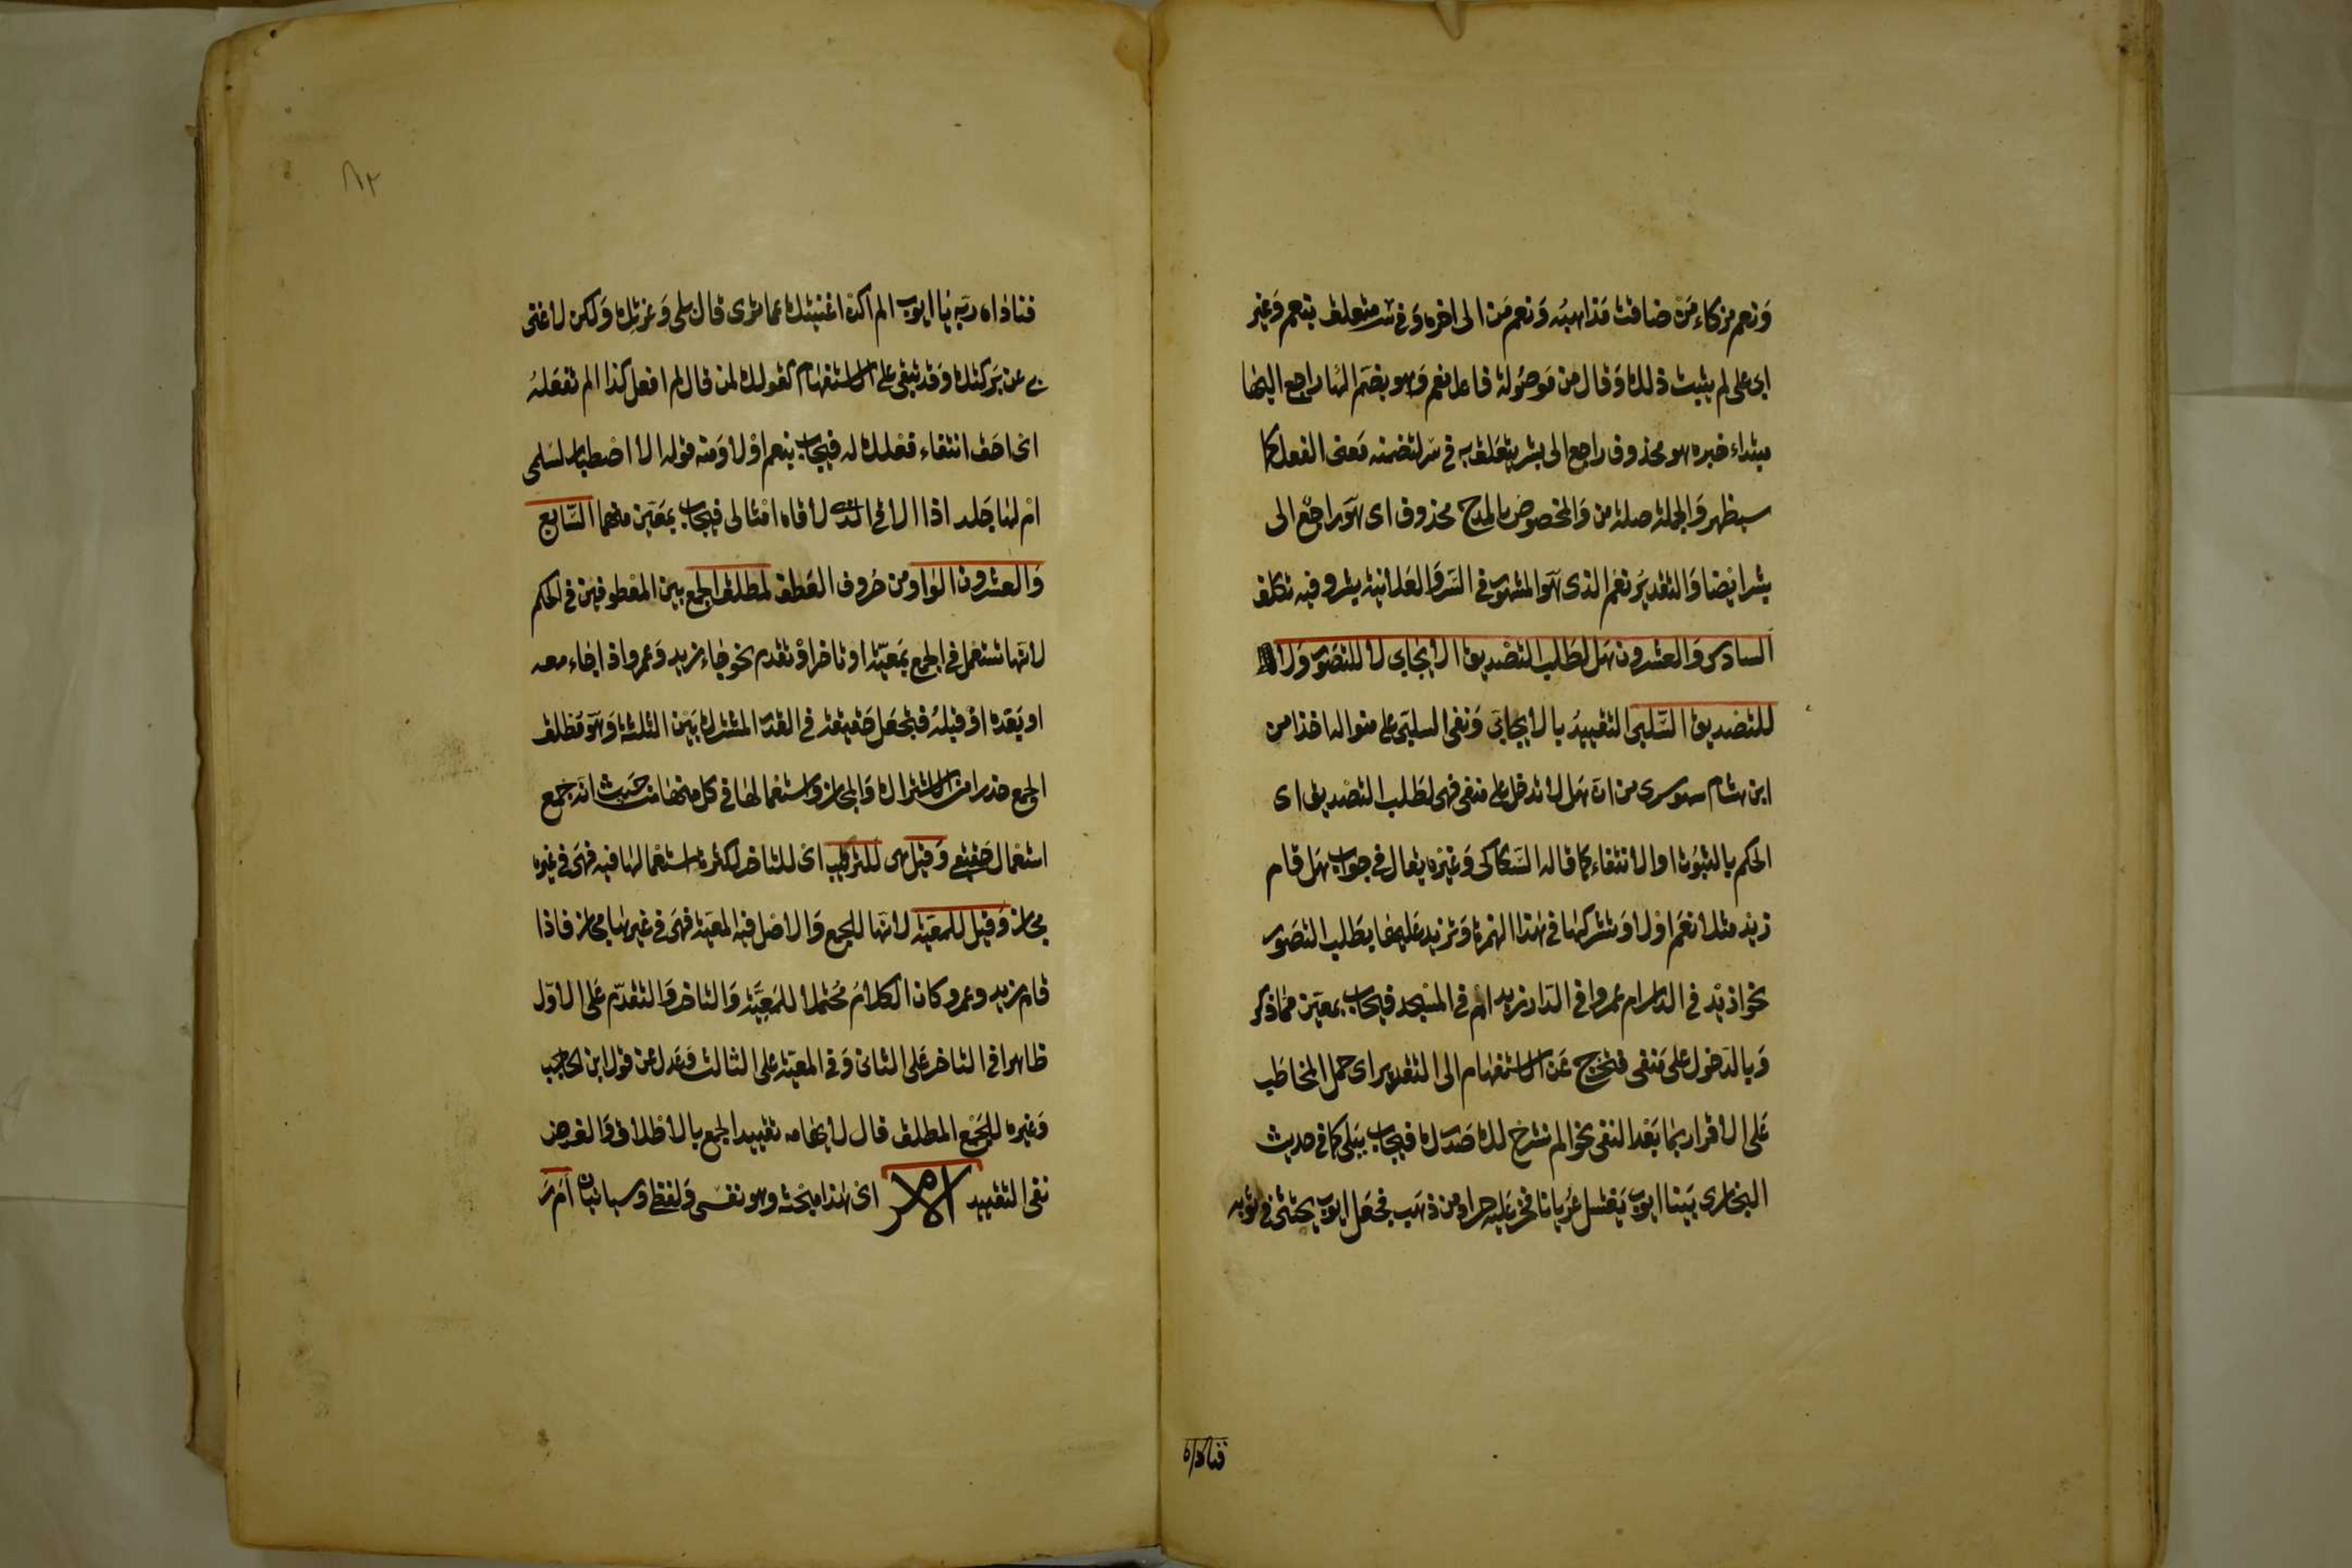 ونعم مزكاء من ضاقت مذاهبه ونعم من الى اخره وفي سر متعلق بنعم وغير
ابي علي لم يثبت ذلك وقال من موصولة فاعل نعم وهو بضم الها راجع اليها
مبتداء خبره هو محذوف راجع الى بشر يتعلق به في سر لتضمنه معنى الفعل كما
سيظهر والجملة صلة من والمخصوص بالمدح محذوف اى هو راجع الى
بشر ايضا والتقدير نعم الذى هو المشهور في السر والعلانية بشر وفيه تكلف
السادس والعشرون هل لطلب التصديق الايجابى لا للتصور ولا
للتصديق السلبى التقييد بالايجابي ونفى السلبى على منواله اخذا من
ابن هشام سهو سرى من ان هل لا تدخل على منفى فهى لطلب التصديق اى
الحكم بالثبوت او الانتفاء كما قاله السكاكى وغيره يقال في جواب هل قام
زيد مثلا نعم او لا وتشركها في هذا الهمزة وتزيد عليها بطلب التصور
نحو ازيد في الدار ام عمرو افى الدار زيد ام فى المسجد فيجاب بمعين مما ذكر
وبالدخول على منفى فتخرج عن الاستفهام الى التقرير اى حمل المخاطب
على الاقرار بما بعد النفى نحو الم نشرح لك صدرك فيجاب ببلى كما في حديث
البخارى بينا ايوب يغتسل عريانا فخر عليه جراد من ذهب فجعل ايوب يحتثى في ثوبه
فناداه
٨٢
فناداه ربه يا ايوب الم اكن اغنيتك عما ترى قال بلى وعزتك ولكن لا غنى
بى عن بركتك وقد تبقى على الاستفهام كقولك لمن قال لم افعل كذا الم تفعله
اى احق انتفاء فعلك له فيجاب بنعم او لا ومنه قوله الا اصطبار لسلمى
ام لها جلد اذا الاقى الذى لاقاه امثالى فيجاب بمعين منهما السابع
والعشرون الواو من حروف العطف لمطلق الجمع بين المعطوفين فى الحكم
لانها تستعمل في الجمع بمعية او تاخر او تقدم نحو جاء زيد وعمرو اذا جاء معه
او بعده او قبله فتجعل حقيقة في القدر المشترك بين الثلثة وهو مطلق
الجمع حذرا من الاشتراك والمجاز واستعمالها في كل منها من حيث انه جمع
استعمال حقيقى وقيل هى للترتيب اى للتاخر لكثرة استعمالها فيه فهى فى غيره
مجاز وقيل للمعية لانها للجمع والاصل فيه المعية فهى في غيرها مجاز فاذا
قام زيد وعمرو كان الكلام محتملا للمعية والتاخر والتقدم على الاول
ظاهرا فى التاخر على الثانى وفى المعية على الثالث وعدل عن قول ابن الحاجب
وغيره للجمع المطلق قال لايهامه تقييد الجمع بالاطلاق والغرض
نفى التقييد الامر اى هذا مبحثه وهو نفسى ولفظى وسياتيان ام ر